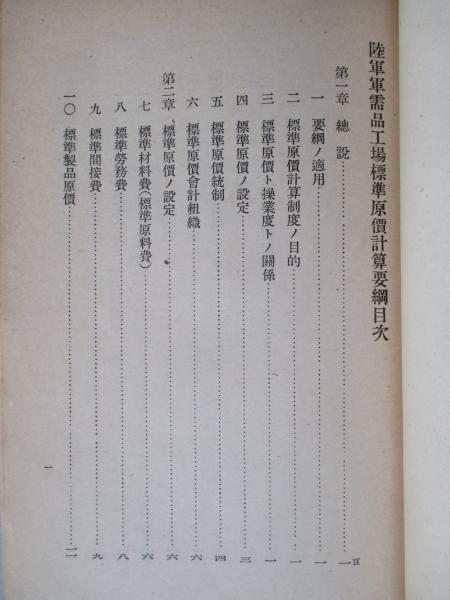 陸軍軍需品工場標準原價計算要綱目次
頁
第一章 總說……一
一 要綱ノ適用……一
二 標準原價計算制度ノ目的……一
三 標準原價ト操業度トノ關係……一
四 標準原價ノ設定……三
五 標準原價統制……四
六 標準原價會計組織……六
第二章 標準原價ノ設定……六
七 標準材料費(標準原料費)……六
八 標準勞務費……八
九 標準間接費……九
一〇 標準製品原價……一一
一